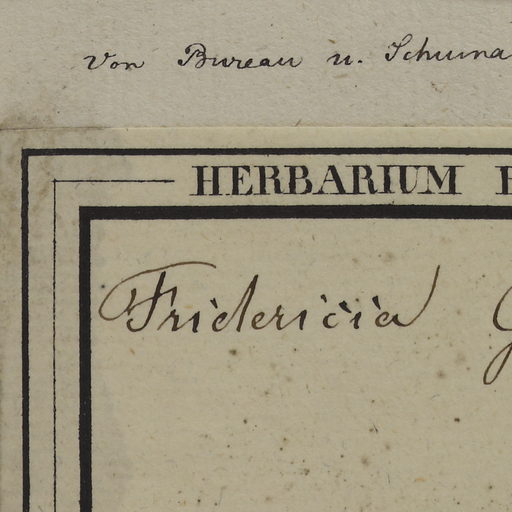 Von Bureau u. Schuma
HERBARIUM
Fridericia